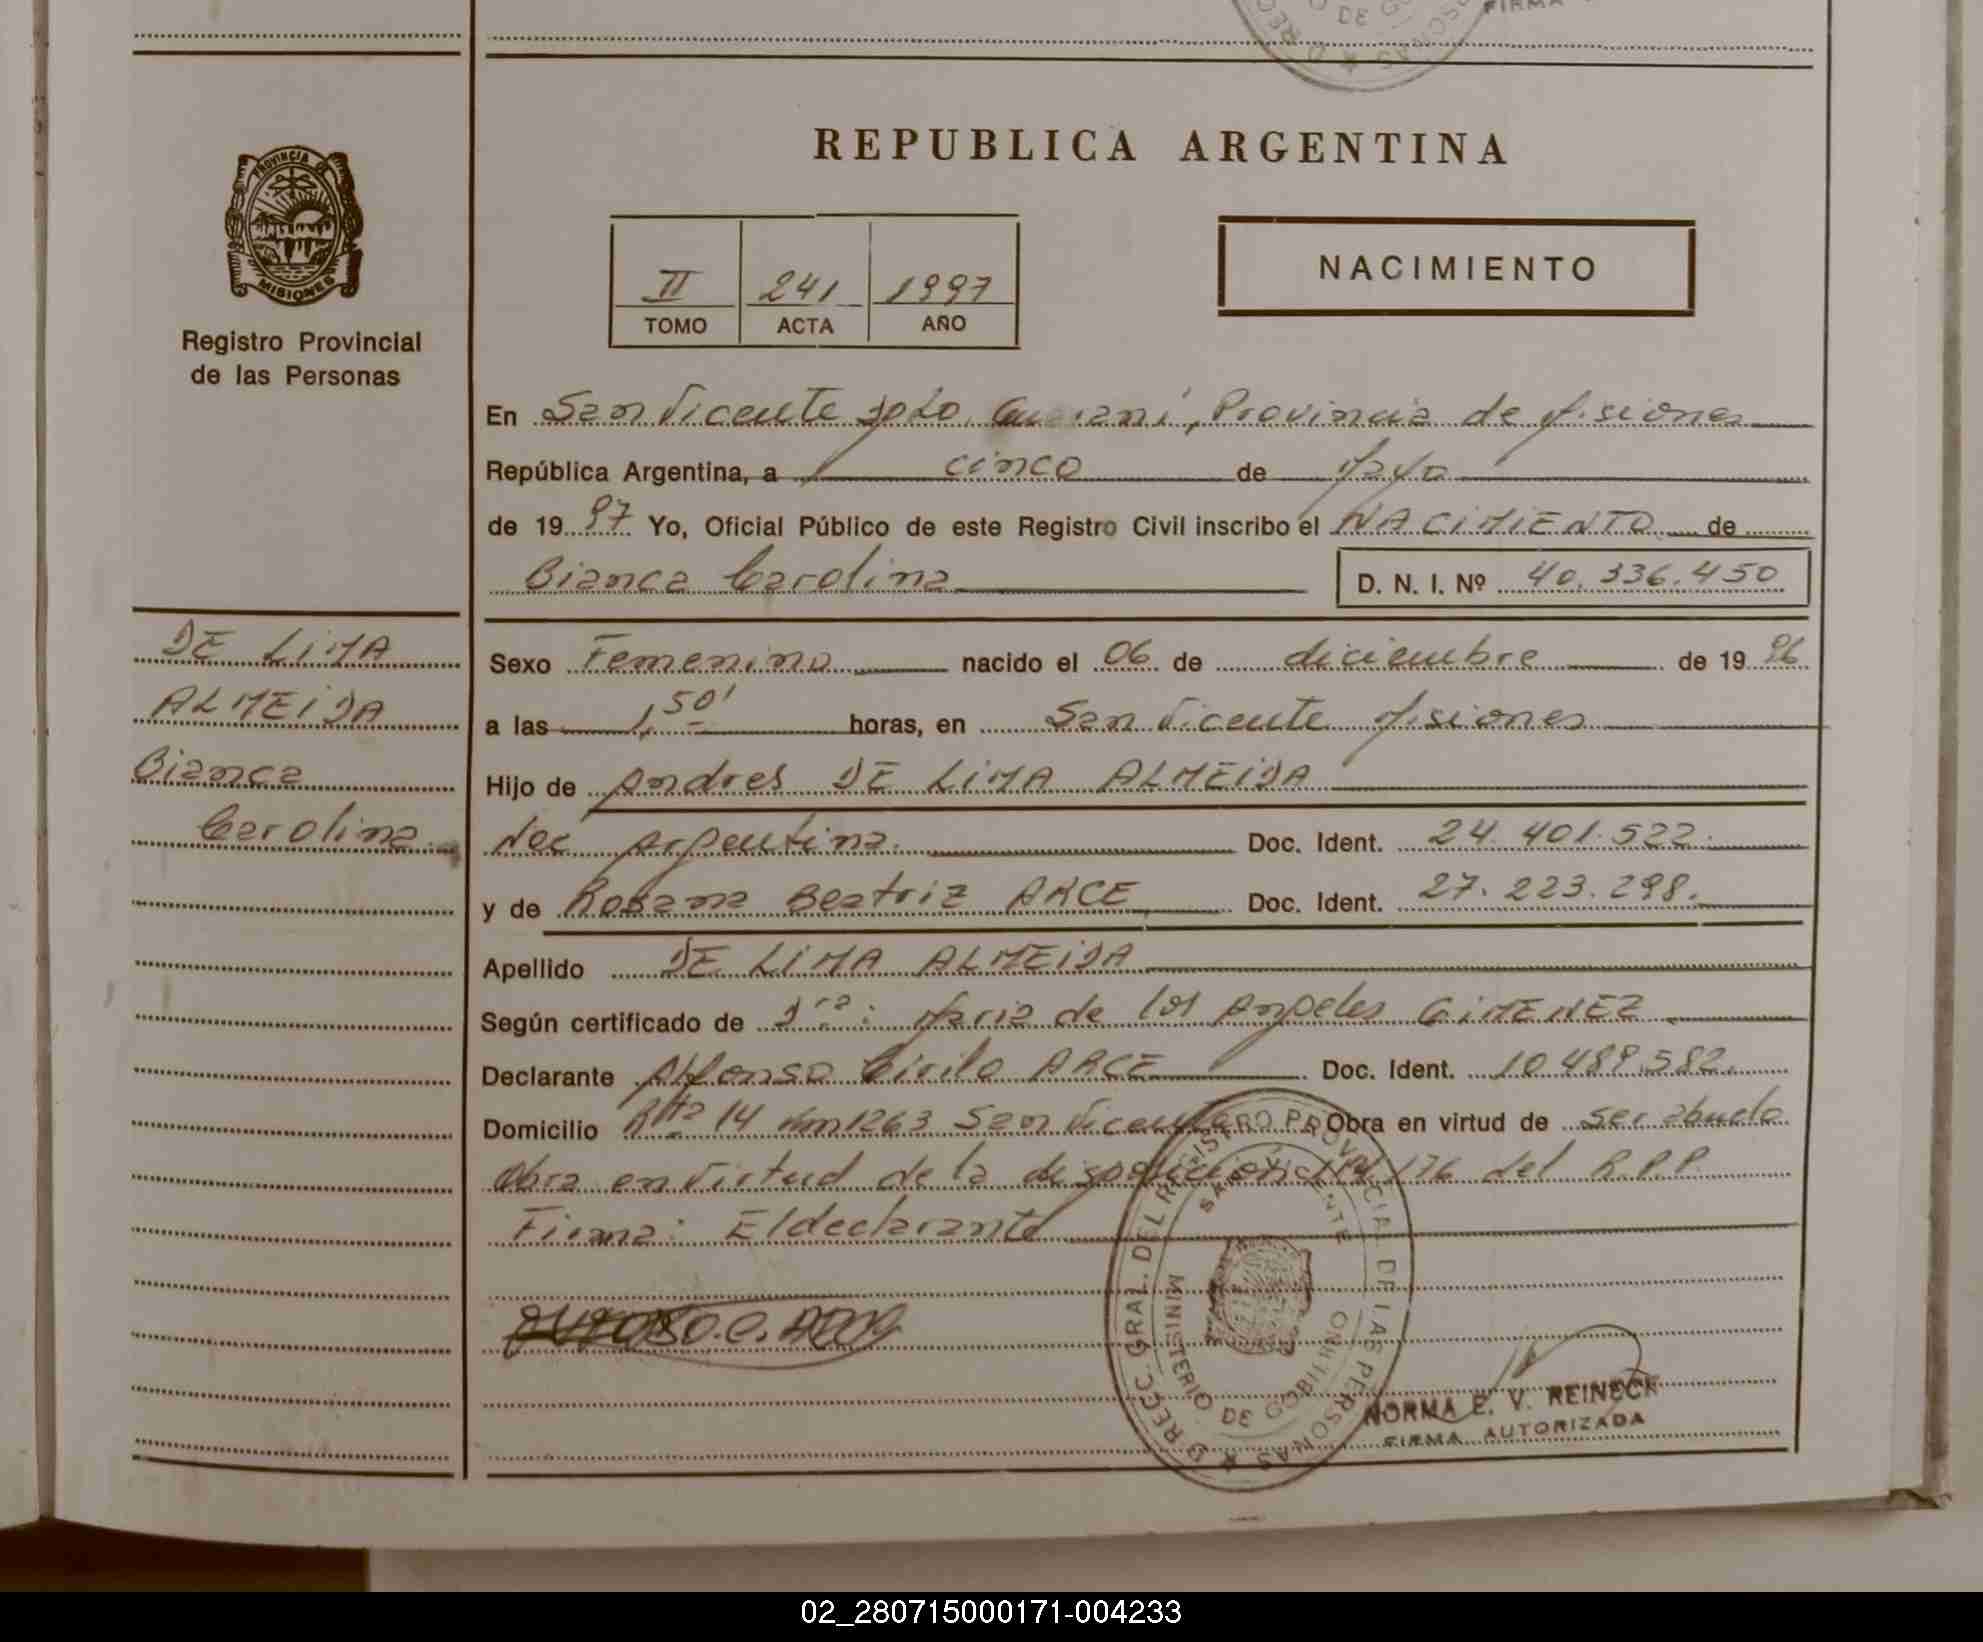 FIRMA
REPUBLICA ARGENTINA
PROVINCIA DE
MISIONES
Registro Provincial
de las Personas
II 241 1997
TOMO ACTA AÑO
NACIMIENTO
En San Vicente Dpto. Guaraní, Provincia de Misiones
República Argentina, a cinco de Mayo
de 1997 Yo, Oficial Público de este Registro Civil inscribo el NACIMIENTO de
Bianca Carolina D. N. I. Nº 40.336.450
DE LIMA
ALMEIDA
Bianca
Carolina
Sexo Femenino nacido el 06 de diciembre de 1996
a las 1,50' horas, en San Vicente Misiones
Hijo de Andres DE LIMA ALMEIDA
Nac Argentina. Doc. Ident. 24.401.522
y de Rosana Beatriz ARCE Doc. Ident. 27.223.298.
Apellido DE LIMA ALMEIDA
Según certificado de Dra: Maria de los Angeles GIMENEZ
Declarante Alfonso Cirilo ARCE Doc. Ident. 10.489.582.
Domicilio Rta 14 Km 1263 San Vicente Obra en virtud de ser abuelo
Obra en virtud de la disposición 176 del R.P.P.
Firma: El declarante
DIRECC. GRAL. DEL REGISTRO PROVINCIAL DE LAS PERSONAS
SAN VICENTE
MINISTERIO DE GOBIERNO
NORMA E. V. REINECK
FIRMA AUTORIZADA
02_280715000171-004233